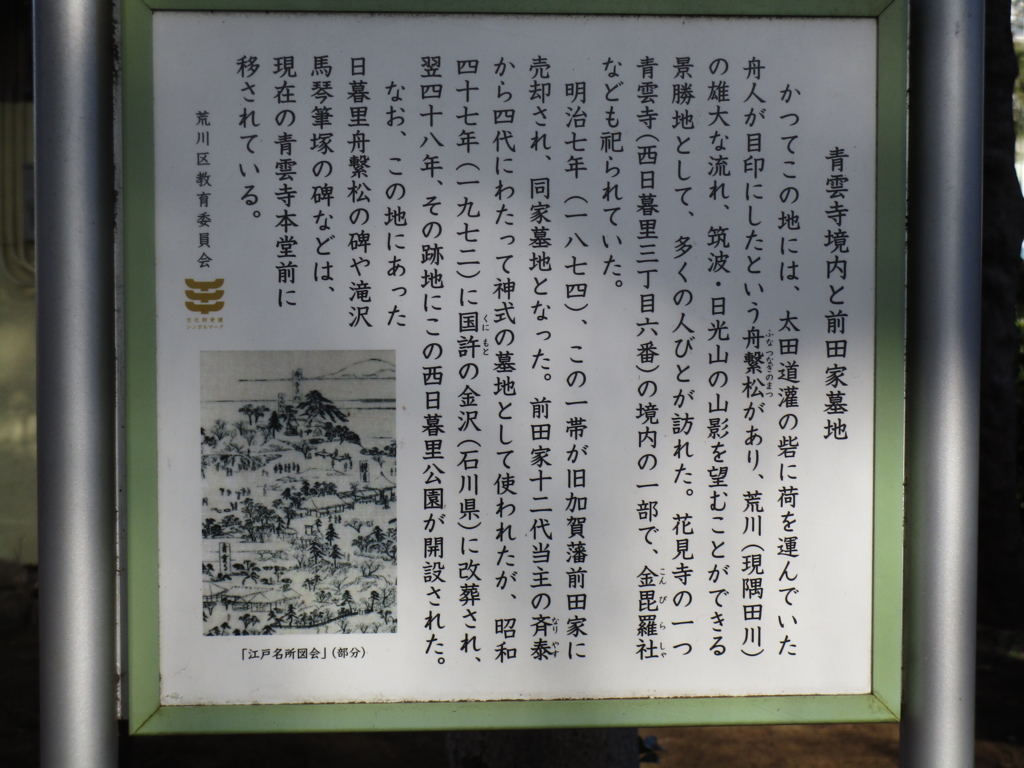 青雲寺境内と前田家墓地
かつてこの地には、太田道灌の砦に荷を運んでいた
舟人が目印にしたという舟繋松があり、荒川(現隅田川)
ふなつなぎのまつ
の雄大な流れ、筑波・日光山の山影を望むことができる
景勝地として、多くの人びとが訪れた。花見寺の一つ
青雲寺(西日暮里三丁目六番)の境内の一部で、金毘羅社
こんぴらしゃ
なども祀られていた。
明治七年(一八七四)、この一帯が旧加賀藩前田家に
売却され、同家墓地となった。前田家十二代当主の斉泰
なりやす
から四代にわたって神式の墓地として使われたが、昭和
四十七年(一九七二)に国許の金沢(石川県)に改葬され、
くにもと
翌四十八年、その跡地にこの西日暮里公園が開設された。
なお、この地にあった
日暮里舟繋松の碑や滝沢
馬琴筆塚の碑などは、
現在の青雲寺本堂前に
移されている。
荒川区教育委員会
「江戸名所図会」(部分)